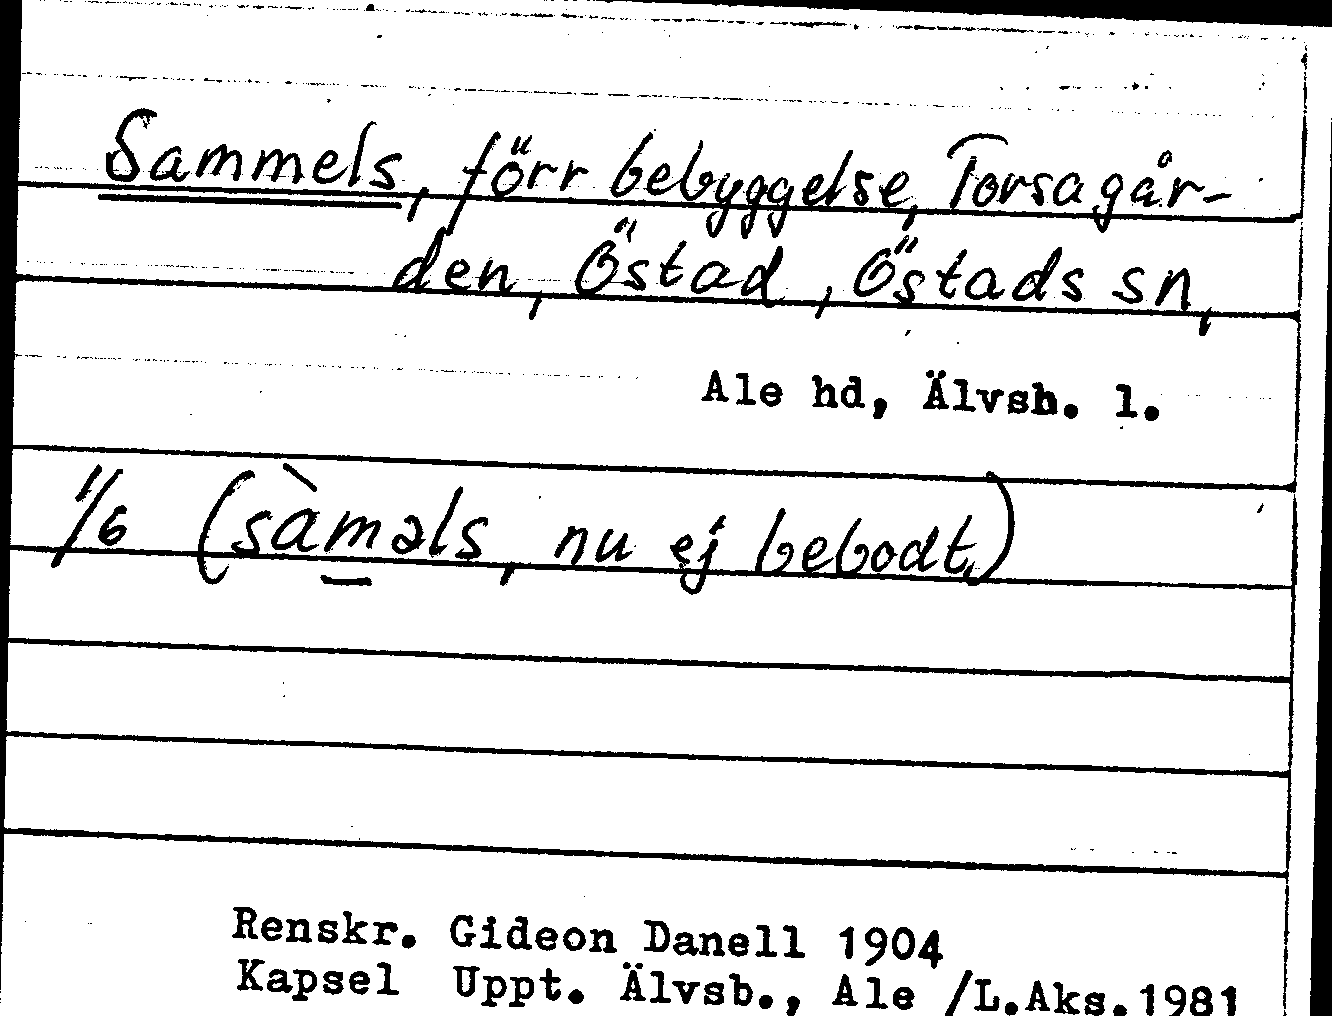 Sammels, förr bebyggelse, Torsagår-
den, Östad, Östads sn,
Ale hd, Älvsb. l.
1/6 (sàm̲əls, nu ej bebodt.)
Renskr. Gideon Danell 1904
Kapsel Uppt. Älvsb., Ale /L.Aks.1981